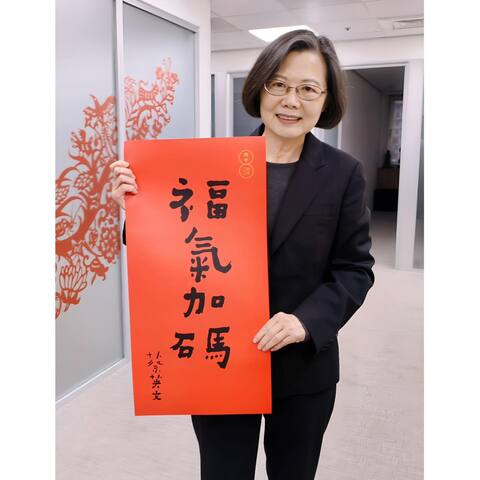 福氣加碼
蔡英文